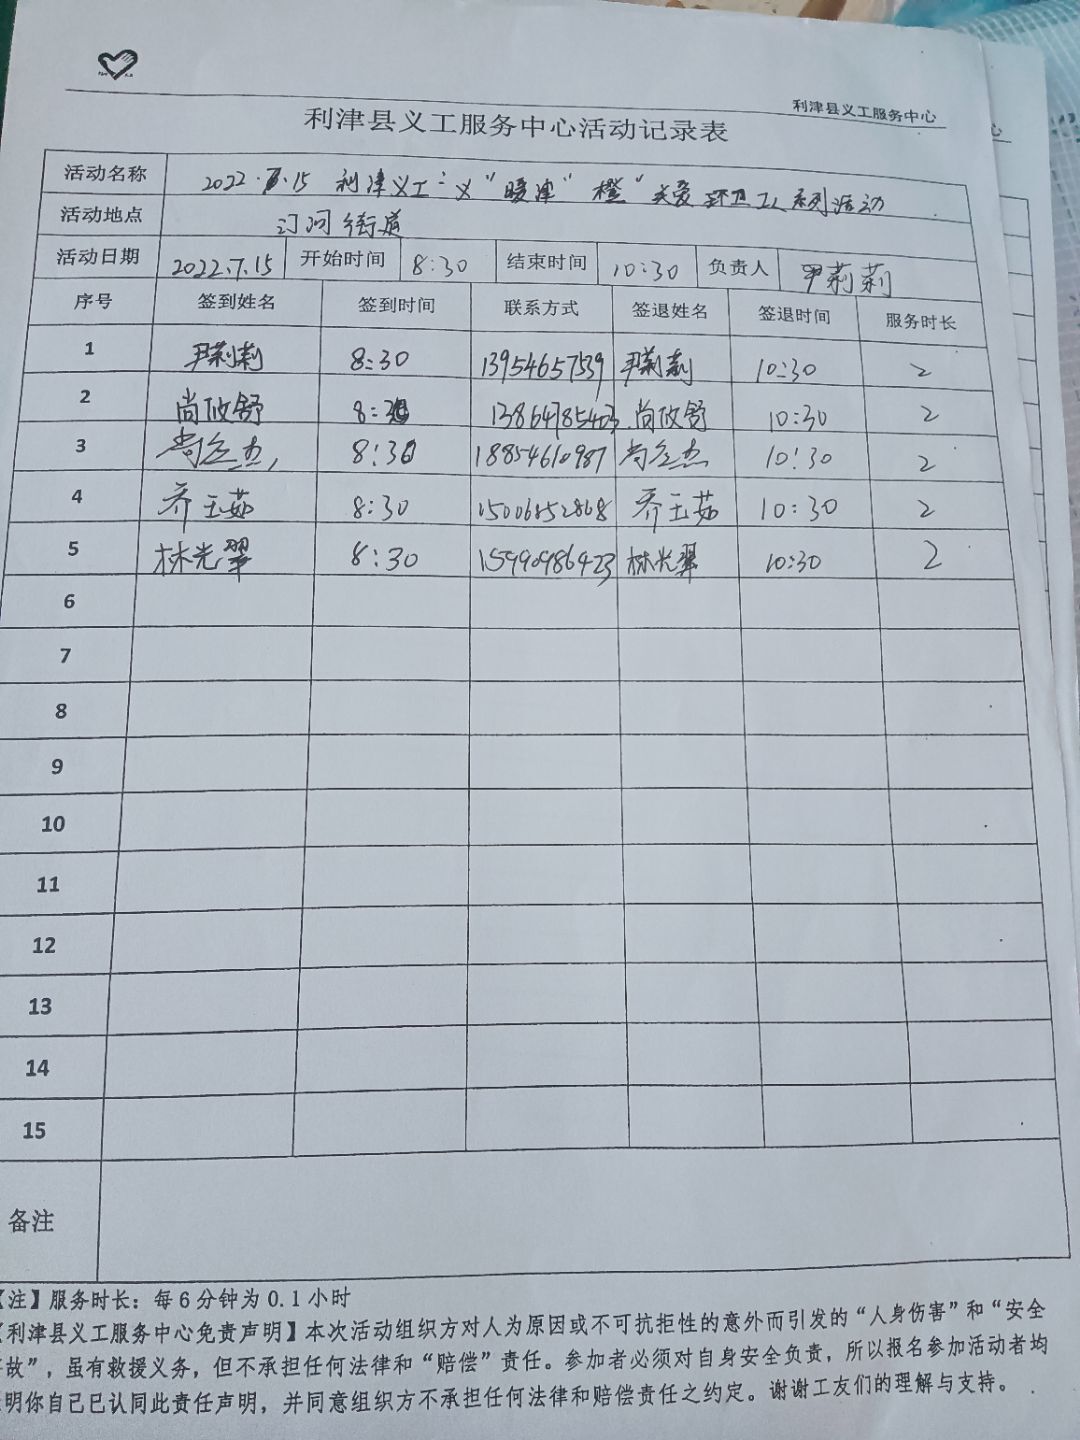 利津县义工服务中心
利津县义工服务中心活动记录表
活动名称 2022.7.15 利津义工:义"暖津"橙"关爱环卫工人系列活动
活动地点 汀河街道
活动日期 2022.7.15 开始时间 8:30 结束时间 10:30 负责人 尹莉莉
序号 签到姓名 签到时间 联系方式 签退姓名 签退时间 服务时长
1 尹莉莉 8:30 13954657539 尹莉莉 10:30 2
2 尚攸舒 8:30 尚攸舒 10:30 2
3 8:30 18854610987 10:30 2
4 乔玉茹 8:30 乔玉茹 10:30 2
5 林光翠 8:30 林光翠 10:30 2
6
7
8
9
10
11
12
13
14
15
备注
【注】服务时长：每6分钟为0.1小时
【利津县义工服务中心免责声明】本次活动组织方对人为原因或不可抗拒性的意外而引发的“人身伤害”和“安全
故”，虽有救援义务，但不承担任何法律和“赔偿”责任。参加者必须对自身安全负责，所以报名参加活动者均
明你自己已认同此责任声明，并同意组织方不承担任何法律和赔偿责任之约定。谢谢工友们的理解与支持。